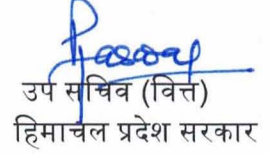 उप सचिव (वित्त)
हिमाचल प्रदेश सरकार